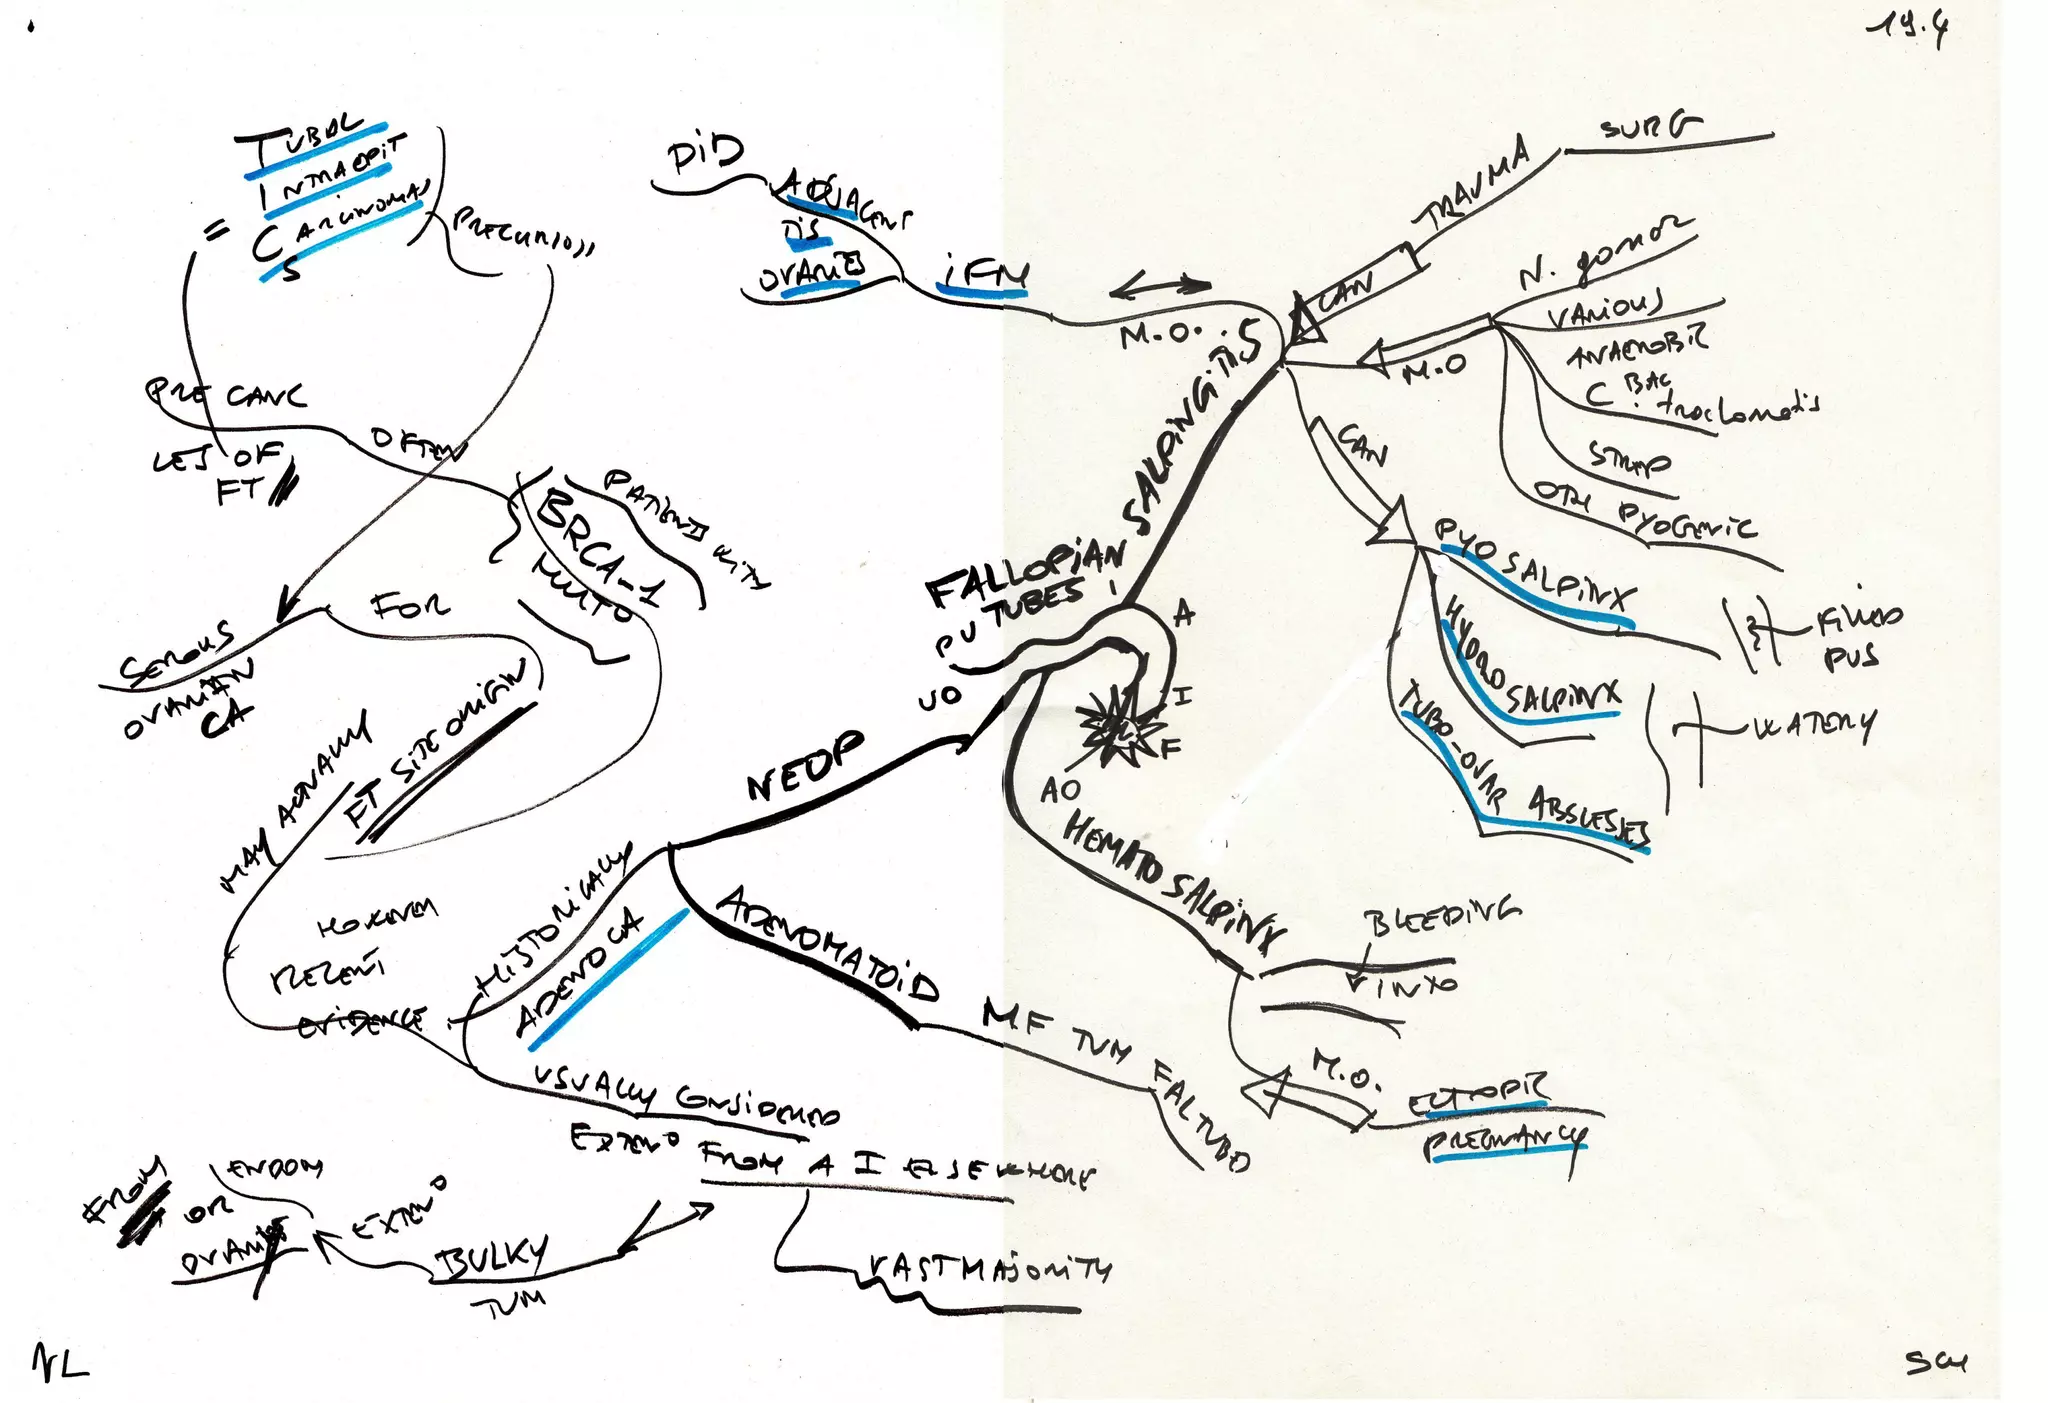 19.4
TUBAL
INTRAEPIT
CARCINOMAS
S
=
PRECURSORS
PRE CANC
LES OF
FT
OFTEN
PATIENTS WITH
BRCA-1
MUTO
FOR
SEROUS
OVARIAN
CA
FT SITE ORIGIN
MAY ACTUALLY
HOWEVER
RECENT
EVIDENCE
PID
ADJACENT
TIS
OVARIES
IFM
M.O.
SALPINGITIS
CAN
TRAUMA
SURG
M.O
N. gonor
VARIOUS
ANAEROBIC
BAC
C. trachomatis
STREP
OTH PYOGENIC
CAN
PYO SALPINX
FILLED
PUS
HYDRO SALPINX
WATERY
TUBO-OVAR ABSCESSES
FALLOPIAN
TUBES
PU
UO
A
I
F
AO
HEMATO SALPINX
BLEEDING
INXO
M.O.
ECTOPIC
PREGNANCY
NEOP
ADENOMATOID
MF TUM FAL TUBO
HISTORICALLY
ADENO CA
USUALLY CONSIDERED
EXTENO
FROM A I ELSEWHERE
VAST MAJORITY
BULKY
TUM
EXTENO
FROM
ENDOM
OR
OVARIES
NL